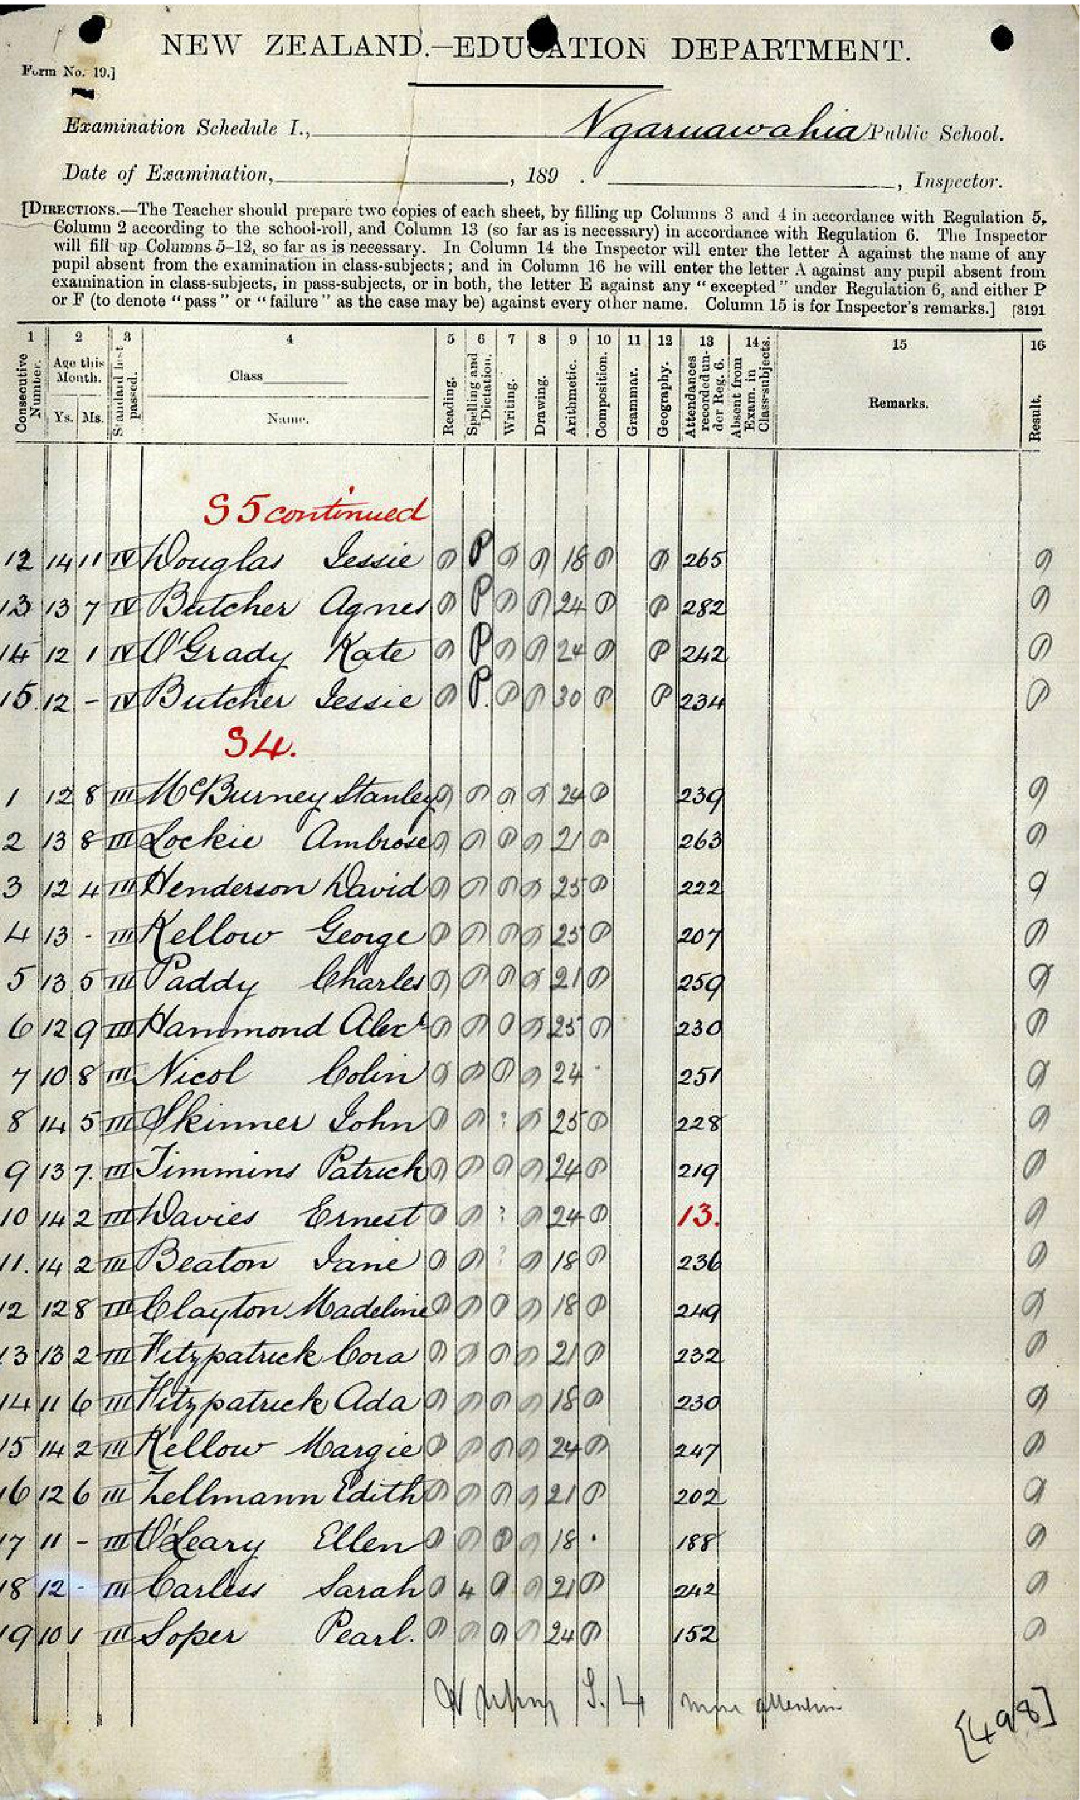 NEW ZEALAND.—EDUCATION DEPARTMENT.
Form No. 19.]
Examination Schedule I., Ngaruawahia Public School.
Date of Examination, , 189 . , Inspector.
[DIRECTIONS.—The Teacher should prepare two copies of each sheet, by filling up Columns 3 and 4 in accordance with Regulation 5,
Column 2 according to the school-roll, and Column 13 (so far as is necessary) in accordance with Regulation 6. The Inspector
will fill up Columns 5–12, so far as is necessary. In Column 14 the Inspector will enter the letter A against the name of any
pupil absent from the examination in class-subjects; and in Column 16 he will enter the letter A against any pupil absent from
examination in class-subjects, in pass-subjects, or in both, the letter E against any "excepted" under Regulation 6, and either P
or F (to denote "pass" or "failure" as the case may be) against every other name. Column 15 is for Inspector's remarks.] [3191
1 2 3 4 5 6 7 8 9 10 11 12 13 14 15 16
Consecutive Number. Age this Month. Ys. Ms. Standard last passed. Class Name. Reading. Spelling and Dictation. Writing. Drawing. Arithmetic. Composition. Grammar. Geography. Attendances recorded under Reg. 6. Absent from Exam. in Class-subjects. Remarks. Result.
S5 continued
12 14 11 IV Douglas Jessie P P P P 18 P P 265 P
13 13 7 IV Butcher Agnes P P P P 24 P P 282 P
14 12 1 IV O'Grady Kate P P P P 24 P P 242 P
15. 12 - IV Butcher Jessie P P. P P 30 P P 234 P
S4.
1 12 8 III McBurney Stanley P P P P 24 P 239 P
2 13 8 III Lockie Ambrose P P P P 21 P 263 P
3 12 4 III Henderson David P P P P 25 P 222 P
4 13 - III Kellow George P P P P 25 P 207 P
5 13 5 III Paddy Charles P P P P 21 P 259 P
6 12 9 III Hammond Alexr P P P P 25 P 230 P
7 10 8 III Nicol Colin P P P P 24 · 251 P
8 14 5 III Skinner John P P ? P 25 P 228 P
9 13 7. III Timmins Patrick P P P P 24 P 219 P
10 14 2 III Davies Ernest P P ? P 24 P 13. P
11. 14 2 III Beaton Jane P P ? P 18 P 236 P
12 12 8 III Clayton Madeline P P P P 18 P 249 P
13 13 2 III Fitzpatrick Cora P P P P 21 P 232 P
14 11 6 III Fitzpatrick Ada P P P P 18 P 230 P
15 14 2 III Kellow Margie P P P P 24 P 247 P
16 12 6 III Zellmann Edith P P P P 21 P 202 P
17 11 - III O'Leary Ellen P P P P 18 · 188 P
18 12 - III Carless Sarah P 4 P P 21 P 242 P
19 10 1 III Soper Pearl. P P P P 24 P 152 P
S. 4 more attention
[498]